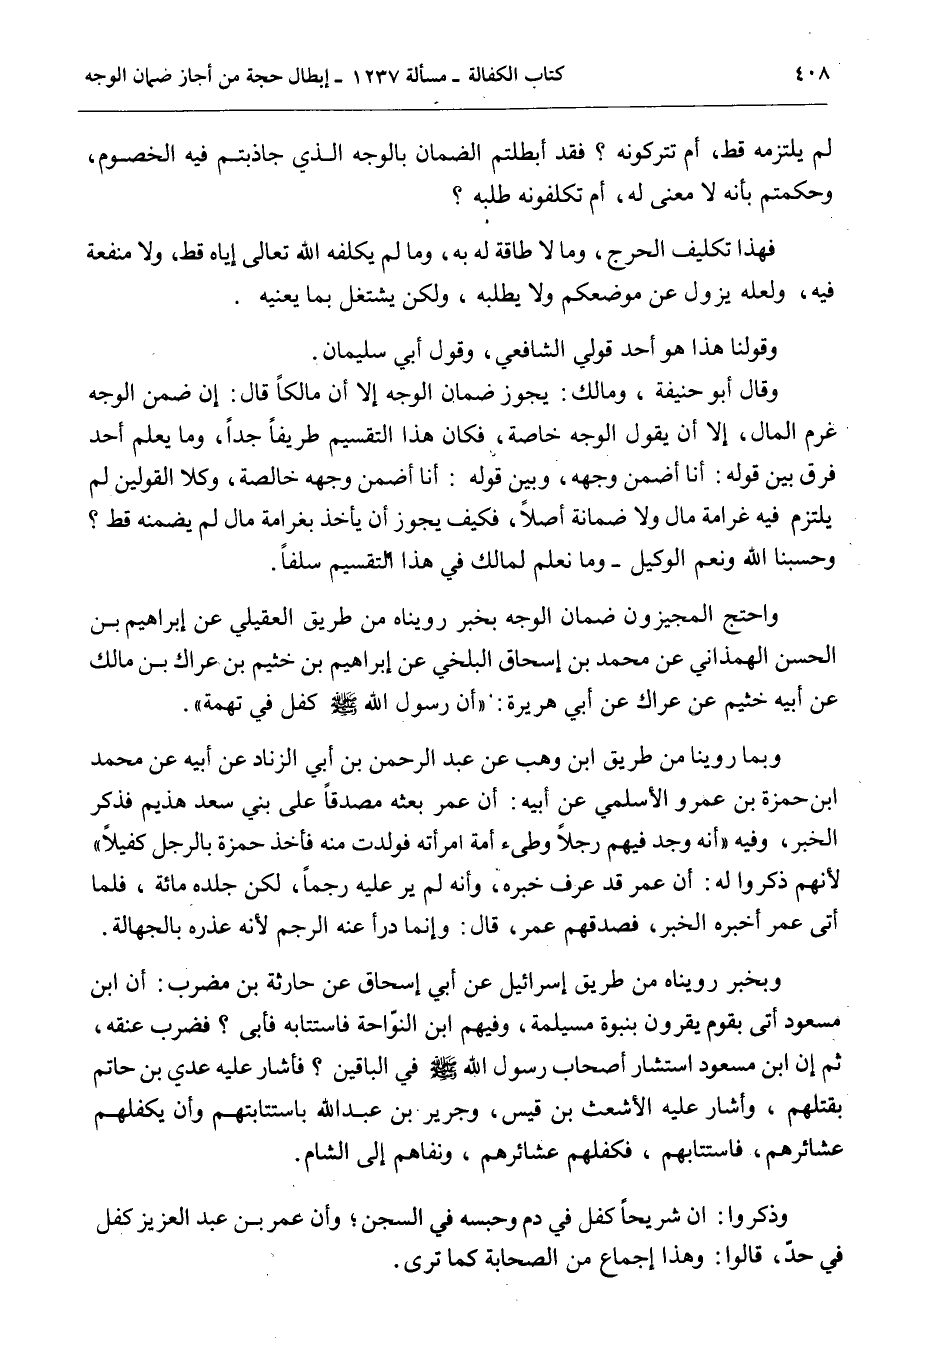 ٤٠٨ كتاب الكفالة ـ مسألة ١٢٣٧ ـ إبطال حجة من أجاز ضمان الوجه
لم يلتزمه قط، أم تتركونه ؟ فقد أبطلتم الضمان بالوجه الـذي جاذبتـم فيه الخصـوم،
وحكمتم بأنه لا معنى له، أم تكلفونه طلبه ؟
فهذا تكليف الحرج، وما لا طاقة له به، وما لم يكلفه الله تعالى إياه قط، ولا منفعة
فيه، ولعله يزول عن موضعكم ولا يطلبه ، ولكن يشتغل بما يعنيه .
وقولنا هذا هو أحد قولي الشافعي، وقول أبي سليمان.
وقال أبو حنيفة ، ومالك: يجوز ضمان الوجه إلا أن مالكاً قال: إن ضمن الوجه
غرم المال، إلا أن يقول الوجه خاصة، فكان هذا التقسيم طريفاً جداً، وما يعلم أحد
فرق بين قوله: أنا أضمن وجهه، وبين قوله : أنا أضمن وجهه خالصة، وكلا القولين لم
يلتزم فيه غرامة مال ولا ضمانة أصلاً، فكيف يجوز أن يأخذ بغرامة مال لم يضمنه قط ؟
وحسبنا الله ونعم الوكيل ـ وما نعلم لمالك في هذا التقسيم سلفاً.
واحتج المجيزون ضمان الوجه بخبر رويناه من طريق العقيلي عن إبراهيم بـن
الحسن الهمذاني عن محمد بن إسحاق البلخي عن إبراهيم بن خثيم بن عراك بـن مالك
عن أبيه خثيم عن عراك عن أبي هريرة: «أن رسول الله ﷺ كفل في تهمة».
وبما روينا من طريق ابن وهب عن عبد الرحمن بن أبي الزناد عن أبيه عن محمد
ابن حمزة بن عمرو الأسلمي عن أبيه: أن عمر بعثه مصدقاً على بني سعد هذيم فذكر
الخبر، وفيه «أنه وجد فيهم رجلاً وطىء أمة امرأته فولدت منه فأخذ حمزة بالرجل كفيلاً»
لأنهم ذكروا له: أن عمر قد عرف خبره، وأنه لم ير عليه رجماً، لكن جلده مائة ، فلما
أتى عمر أخبره الخبر، فصدقهم عمر، قال: وإنما درأ عنه الرجم لأنه عذره بالجهالة.
وبخبر رويناه من طريق إسرائيل عن أبي إسحاق عن حارثة بن مضرب: أن ابن
مسعود أتى بقوم يقرون بنبوة مسيلمة، وفيهم ابن النوّاحة فاستتابه فأبى ؟ فضرب عنقه،
ثم إن ابن مسعود استشار أصحاب رسول الله ﷺ في الباقين ؟ فأشار عليه عدي بن حاتم
بقتلهم ، وأشار عليه الأشعث بن قيس، وجرير بن عبـدالله باستتابتهـم وأن يكفلهـم
عشائرهم، فاستتابهم ، فكفلهم عشائرهم ، ونفاهم إلى الشام.
وذكروا: ان شريحاً كفل في دم وحبسه في السجن؛ وأن عمر بـن عبد العزيز كفل
في حدّ، قالوا: وهذا إجماع من الصحابة كما ترى.